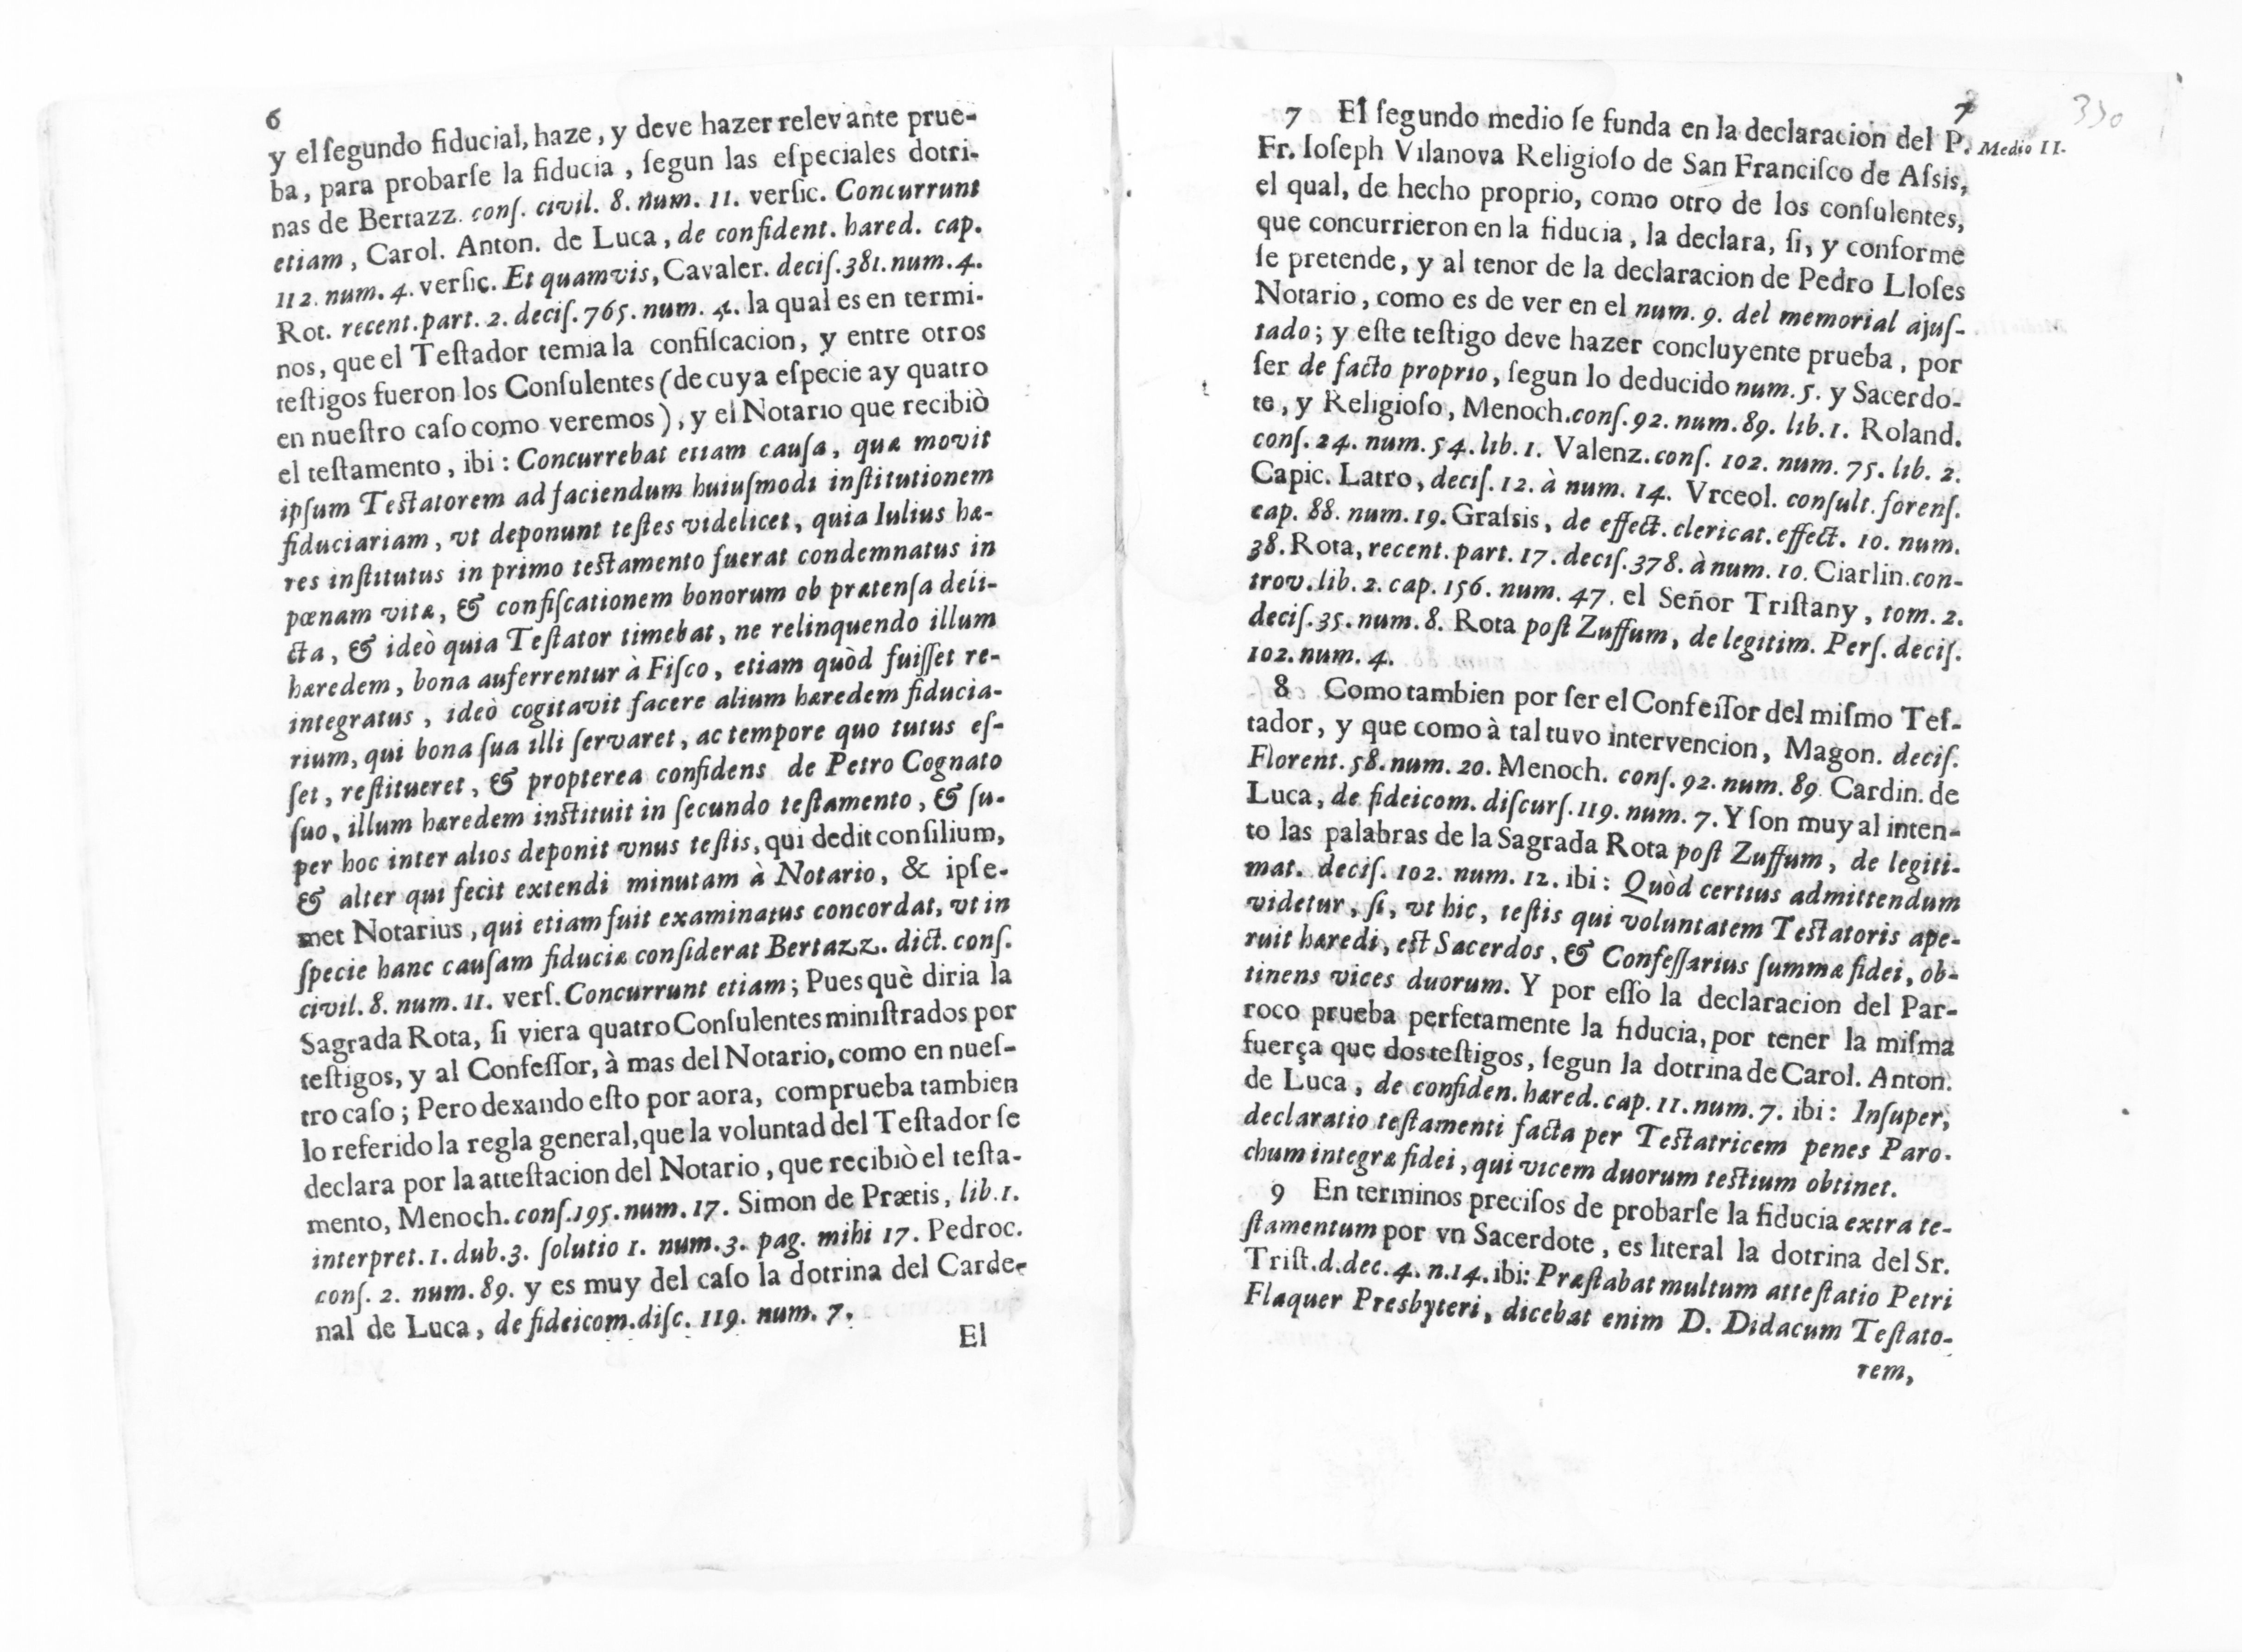 6
y el ſegundo fiducial, haze, y deve hazer relevante prue-
ba, para probarſe la fiducia, ſegun las eſpeciales dotri-
nas de Bertazz. conſ. civil. 8. num. 11. verſic. Concurrunt
etiam, Carol. Anton. de Luca, de confident. hæred. cap.
112. num. 4. verſic. Et quamvis, Cavaler. deciſ. 381. num. 4.
Rot. recent. part. 2. deciſ. 765. num. 4. la qual es en termi-
nos, que el Teſtador temia la confiſcacion, y entre otros
teſtigos fueron los Conſulentes (de cuya eſpecie ay quatro
en nueſtro caſo como veremos), y el Notario que recibiò
el teſtamento, ibi: Concurrebat etiam cauſa, quæ movit
ipſum Teſtatorem ad faciendum huiuſmodi inſtitutionem
fiduciariam, vt deponunt teſtes videlicet, quia Iulius hæ-
res inſtitutus in primo teſtamento fuerat condemnatus in
pœnam vitæ, & confiſcationem bonorum ob prætenſa deli-
cta, & ideò quia Teſtator timebat, ne relinquendo illum
hæredem, bona auferrentur à Fiſco, etiam quòd fuiſſet re-
integratus, ideò cogitavit facere alium hæredem fiducia-
rium, qui bona ſua illi ſervaret, ac tempore quo tutus eſ-
ſet, reſtitueret, & propterea confidens de Petro Cognato
ſuo, illum hæredem inſtituit in ſecundo teſtamento, & ſu-
per hoc inter alios deponit vnus teſtis, qui dedit conſilium,
& alter qui fecit extendi minutam à Notario, & ipſe-
met Notarius, qui etiam fuit examinatus concordat, vt in
ſpecie hanc cauſam fiduciæ conſiderat Bertazz. dict. conſ.
civil. 8. num. 11. verſ. Concurrunt etiam; Pues què diria la
Sagrada Rota, ſi viera quatro Conſulentes miniſtrados por
teſtigos, y al Confeſſor, à mas del Notario, como en nueſ-
tro caſo; Pero dexando eſto por aora, comprueba tambien
lo referido la regla general, que la voluntad del Teſtador ſe
declara por la atteſtacion del Notario, que recibiò el teſta-
mento, Menoch. conſ. 195. num. 17. Simon de Prætis, lib. 1.
interpret. 1. dub. 3. ſolutio 1. num. 3. pag. mihi 17. Pedroc.
conſ. 2. num. 89. y es muy del caſo la dotrina del Carde-
nal de Luca, de fideicom. diſc. 119. num. 7.
El
7
330
7 El ſegundo medio ſe funda en la declaracion del P. Medio II.
Fr. Ioſeph Vilanova Religioſo de San Franciſco de Aſsis,
el qual, de hecho proprio, como otro de los conſulentes,
que concurrieron en la fiducia, la declara, ſi, y conforme
ſe pretende, y al tenor de la declaracion de Pedro Lloſes
Notario, como es de ver en el num. 9. del memorial ajuſ-
tado; y eſte teſtigo deve hazer concluyente prueba, por
ſer de facto proprio, ſegun lo deducido num. 5. y Sacerdo-
te, y Religioſo, Menoch. conſ. 92. num. 89. lib. 1. Roland.
conſ. 24. num. 54. lib. 1. Valenz. conſ. 102. num. 75. lib. 2.
Capic. Latro, deciſ. 12. à num. 14. Vrceol. conſult. forenſ.
cap. 88. num. 19. Graſsis, de effect. clericat. effect. 10. num.
38. Rota, recent. part. 17. deciſ. 378. à num. 10. Ciarlin. con-
trov. lib. 2. cap. 156. num. 47. el Señor Triſtany, tom. 2.
deciſ. 35. num. 8. Rota poſt Zuffum, de legitim. Perſ. deciſ.
102. num. 4.
8 Como tambien por ſer el Confeſſor del miſmo Teſ-
tador, y que como à tal tuvo intervencion, Magon. deciſ.
Florent. 58. num. 20. Menoch. conſ. 92. num. 89. Cardin. de
Luca, de fideicom. diſcurſ. 119. num. 7. Y ſon muy al inten-
to las palabras de la Sagrada Rota poſt Zuffum, de legiti-
mat. deciſ. 102. num. 12. ibi: Quòd certius admittendum
videtur, ſi, vt hic, teſtis qui voluntatem Teſtatoris ape-
ruit hæredi, eſt Sacerdos, & Confeſſarius ſummæ fidei, ob-
tinens vices duorum. Y por eſſo la declaracion del Par-
roco prueba perfetamente la fiducia, por tener la miſma
fuerça que dos teſtigos, ſegun la dotrina de Carol. Anton.
de Luca, de confiden. hæred. cap. 11. num. 7. ibi: Inſuper,
declaratio teſtamenti facta per Teſtatricem penes Paro-
chum integræ fidei, qui vicem duorum teſtium obtinet.
9 En terminos preciſos de probarſe la fiducia extra te-
ſtamentum por vn Sacerdote, es literal la dotrina del Sr.
Triſt. d. dec. 4. n. 14. ibi: Præſtabat multum atteſtatio Petri
Flaquer Presbyteri, dicebat enim D. Didacum Teſtato-
rem,